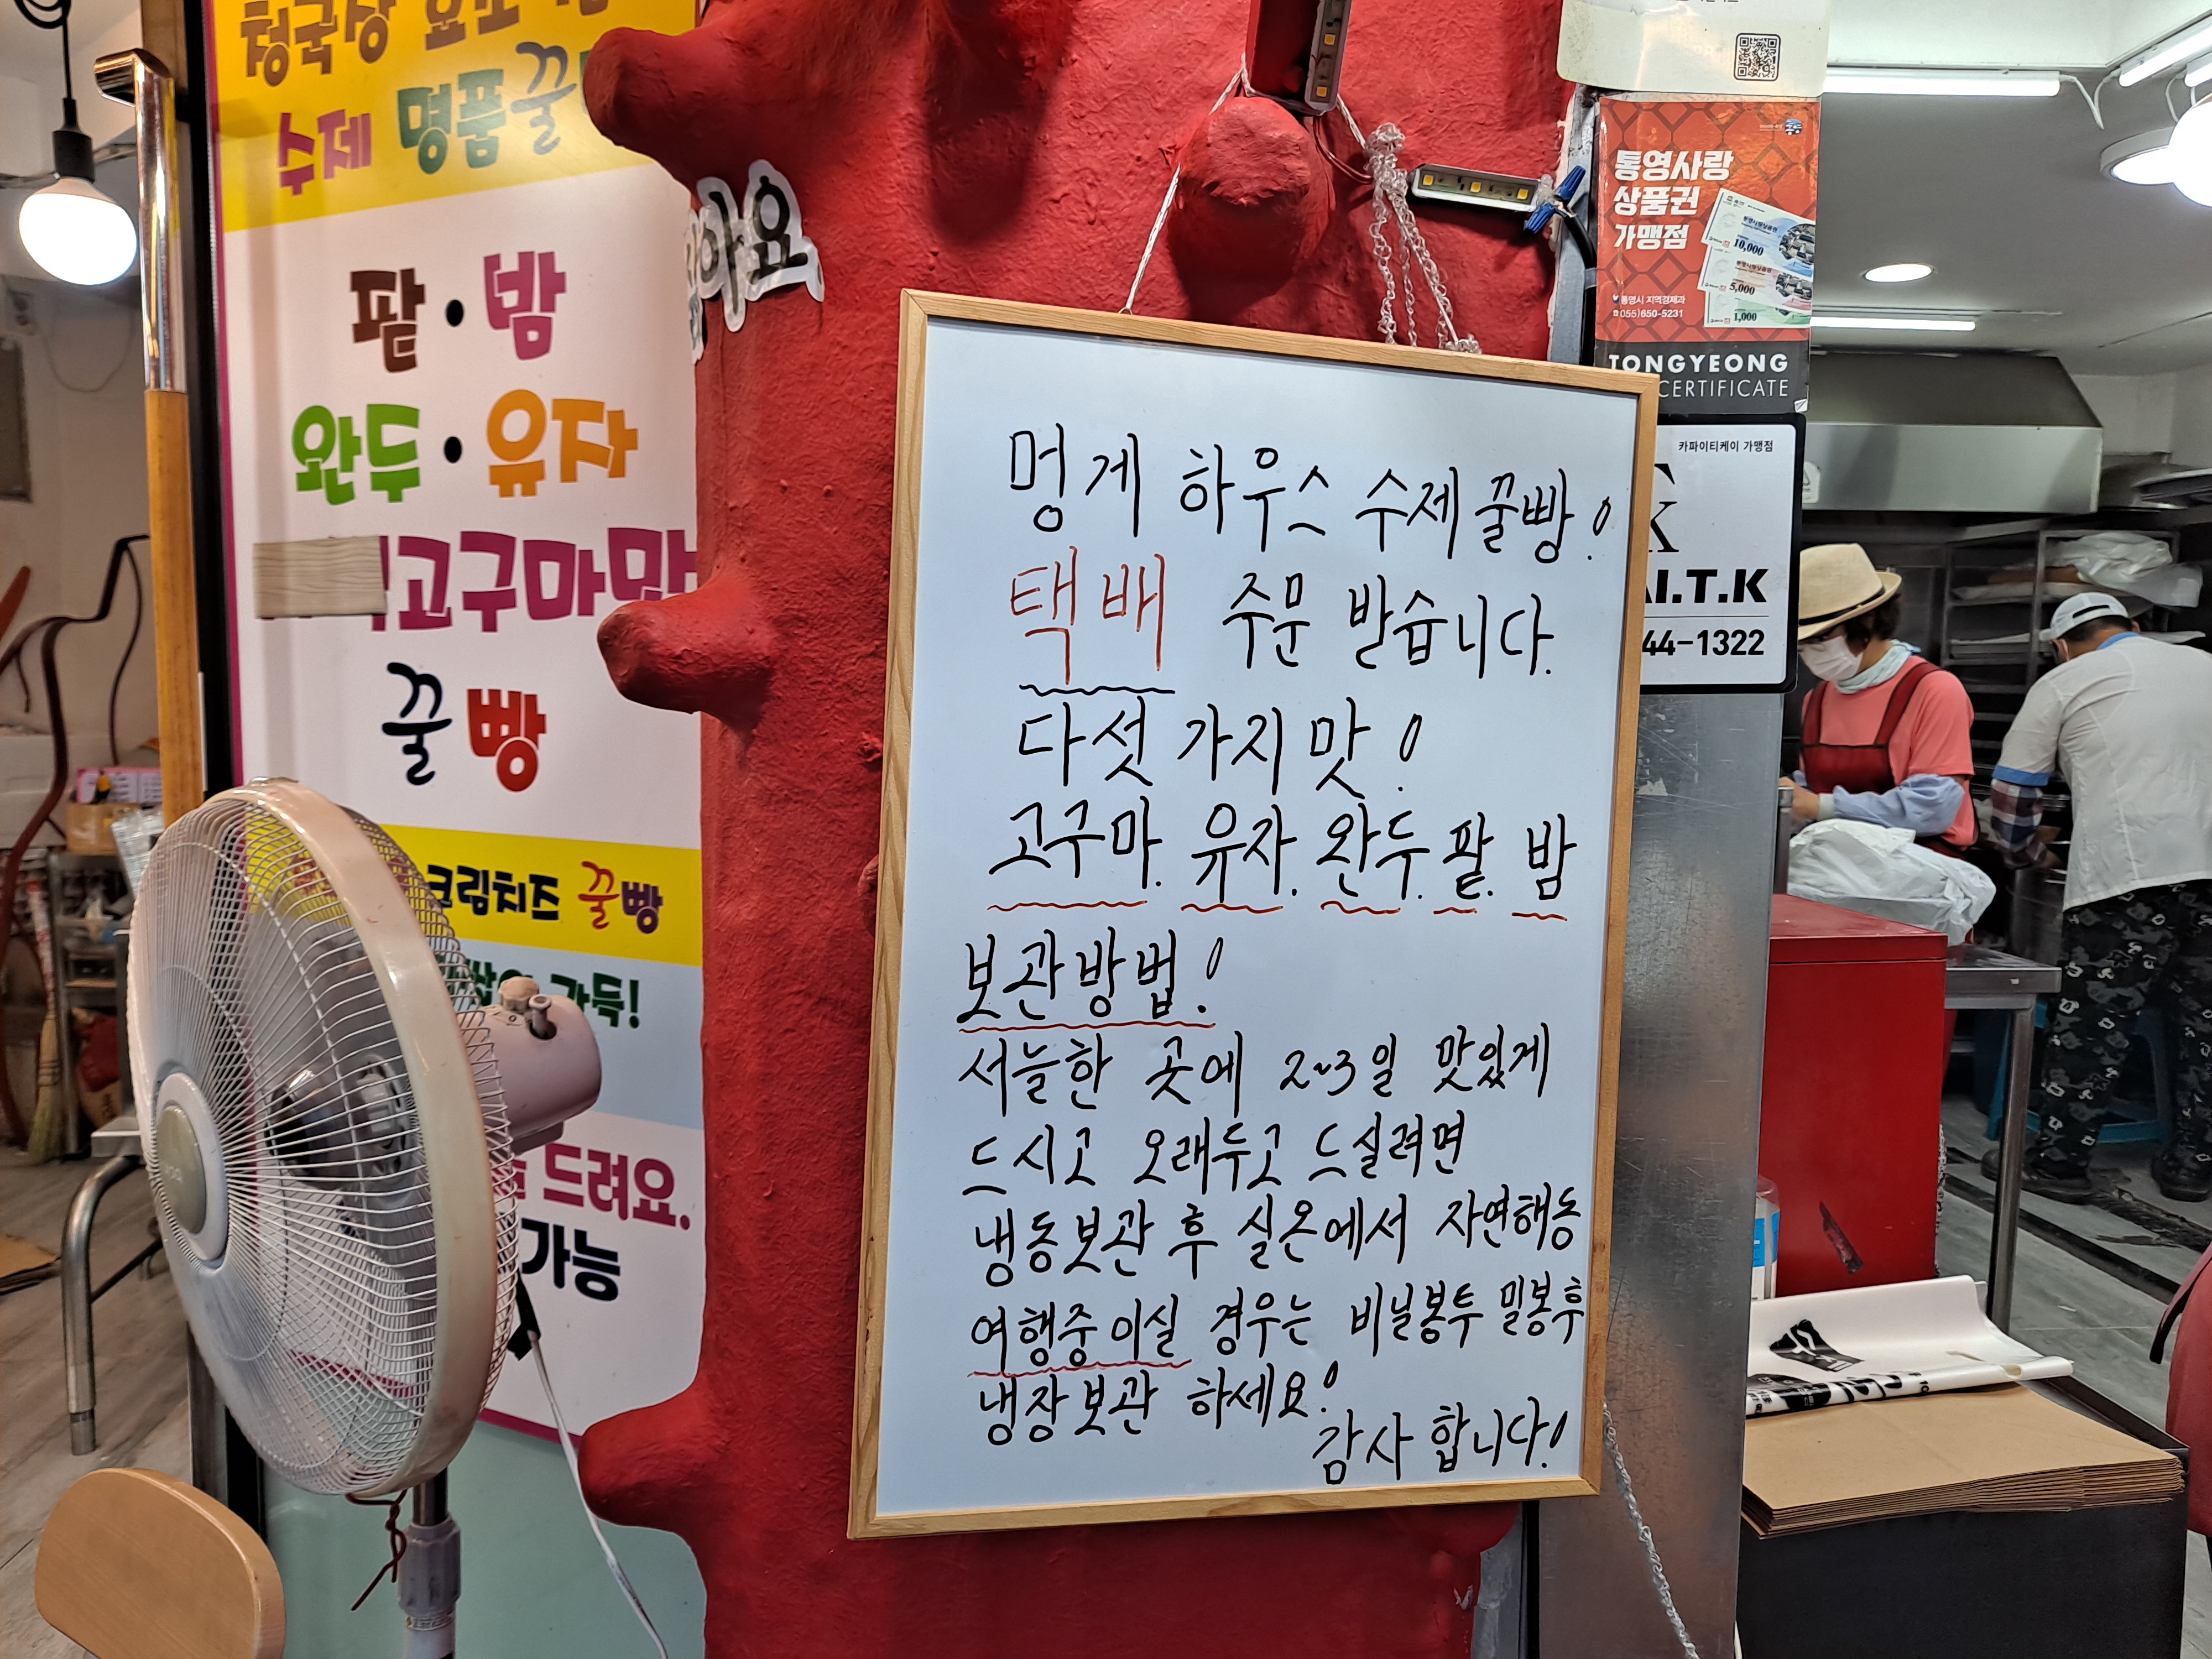 수제 명품꿀
팥·밤
완두·유자
고구마맛
꿀빵
크림치즈 꿀빵
가득!
드려요.
가능
아요
멍게 하우스 수제꿀빵!
택배 주문 받습니다.
다섯가지맛!
고구마. 유자. 완두. 팥. 밤
보관방법!
서늘한 곳에 2~3일 맛있게
드시고 오래두고 드실려면
냉동보관 후 실온에서 자연해동
여행중이실 경우는 비닐봉투 밀봉후
냉장보관 하세요!
감사합니다!
통영사랑
상품권
가맹점
10,000
5,000
1,000
통영시 지역경제과
☎055)650-5231
TONGYEONG
CERTIFICATE
카파이티케이 가맹점
K
I.T.K
44-1322